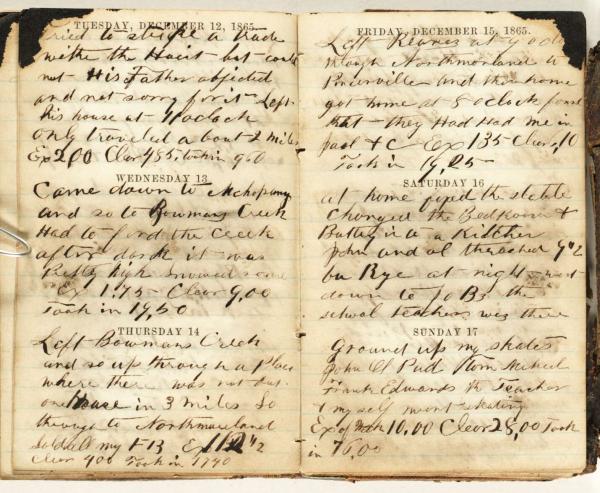 TUESDAY, DECEMBER 12, 1865.
Tried to strike a trade
withe the Hait but could
not His Father objected
and not sorry for it Left
his house at 11 oclock
only traveled about 2 miles
Ex 200 Clear 455, took in 900
WEDNESDAY 13
Came down to
and so to Bowmans Creek
Had to ford the Creek
after dark it was
high snowed some
Ex 1.75 Clear 9,00
Took in 19,50
THURSDAY 14
Left Bowmans Creek
and so up through a Place
where there was not but
one House in 3 miles So
through to Northmoreland
Sold all my Ex 1,12 1/2
Clear 400 Took in 1740
FRIDAY, DECEMBER 15, 1865.
Left at 9 oclk
through Northmorland to
and the home
got home at 8 oclock found
that they Had Had me in
+ C Ex 135 Clear, 10
Took in 19,25
SATURDAY 16
at home the
Changed the Bedroom &
Buttery in to a Kitchen
John and al thrashed 9 1/2
bu Rye at night went
down to Jo Bs the
school teachers was there
SUNDAY 17
Ground up my skates
John Cl
Frank Edwards the Teacher
& myself went skating
Ex of 10,00 Clear 28,00 Took
in 76,00